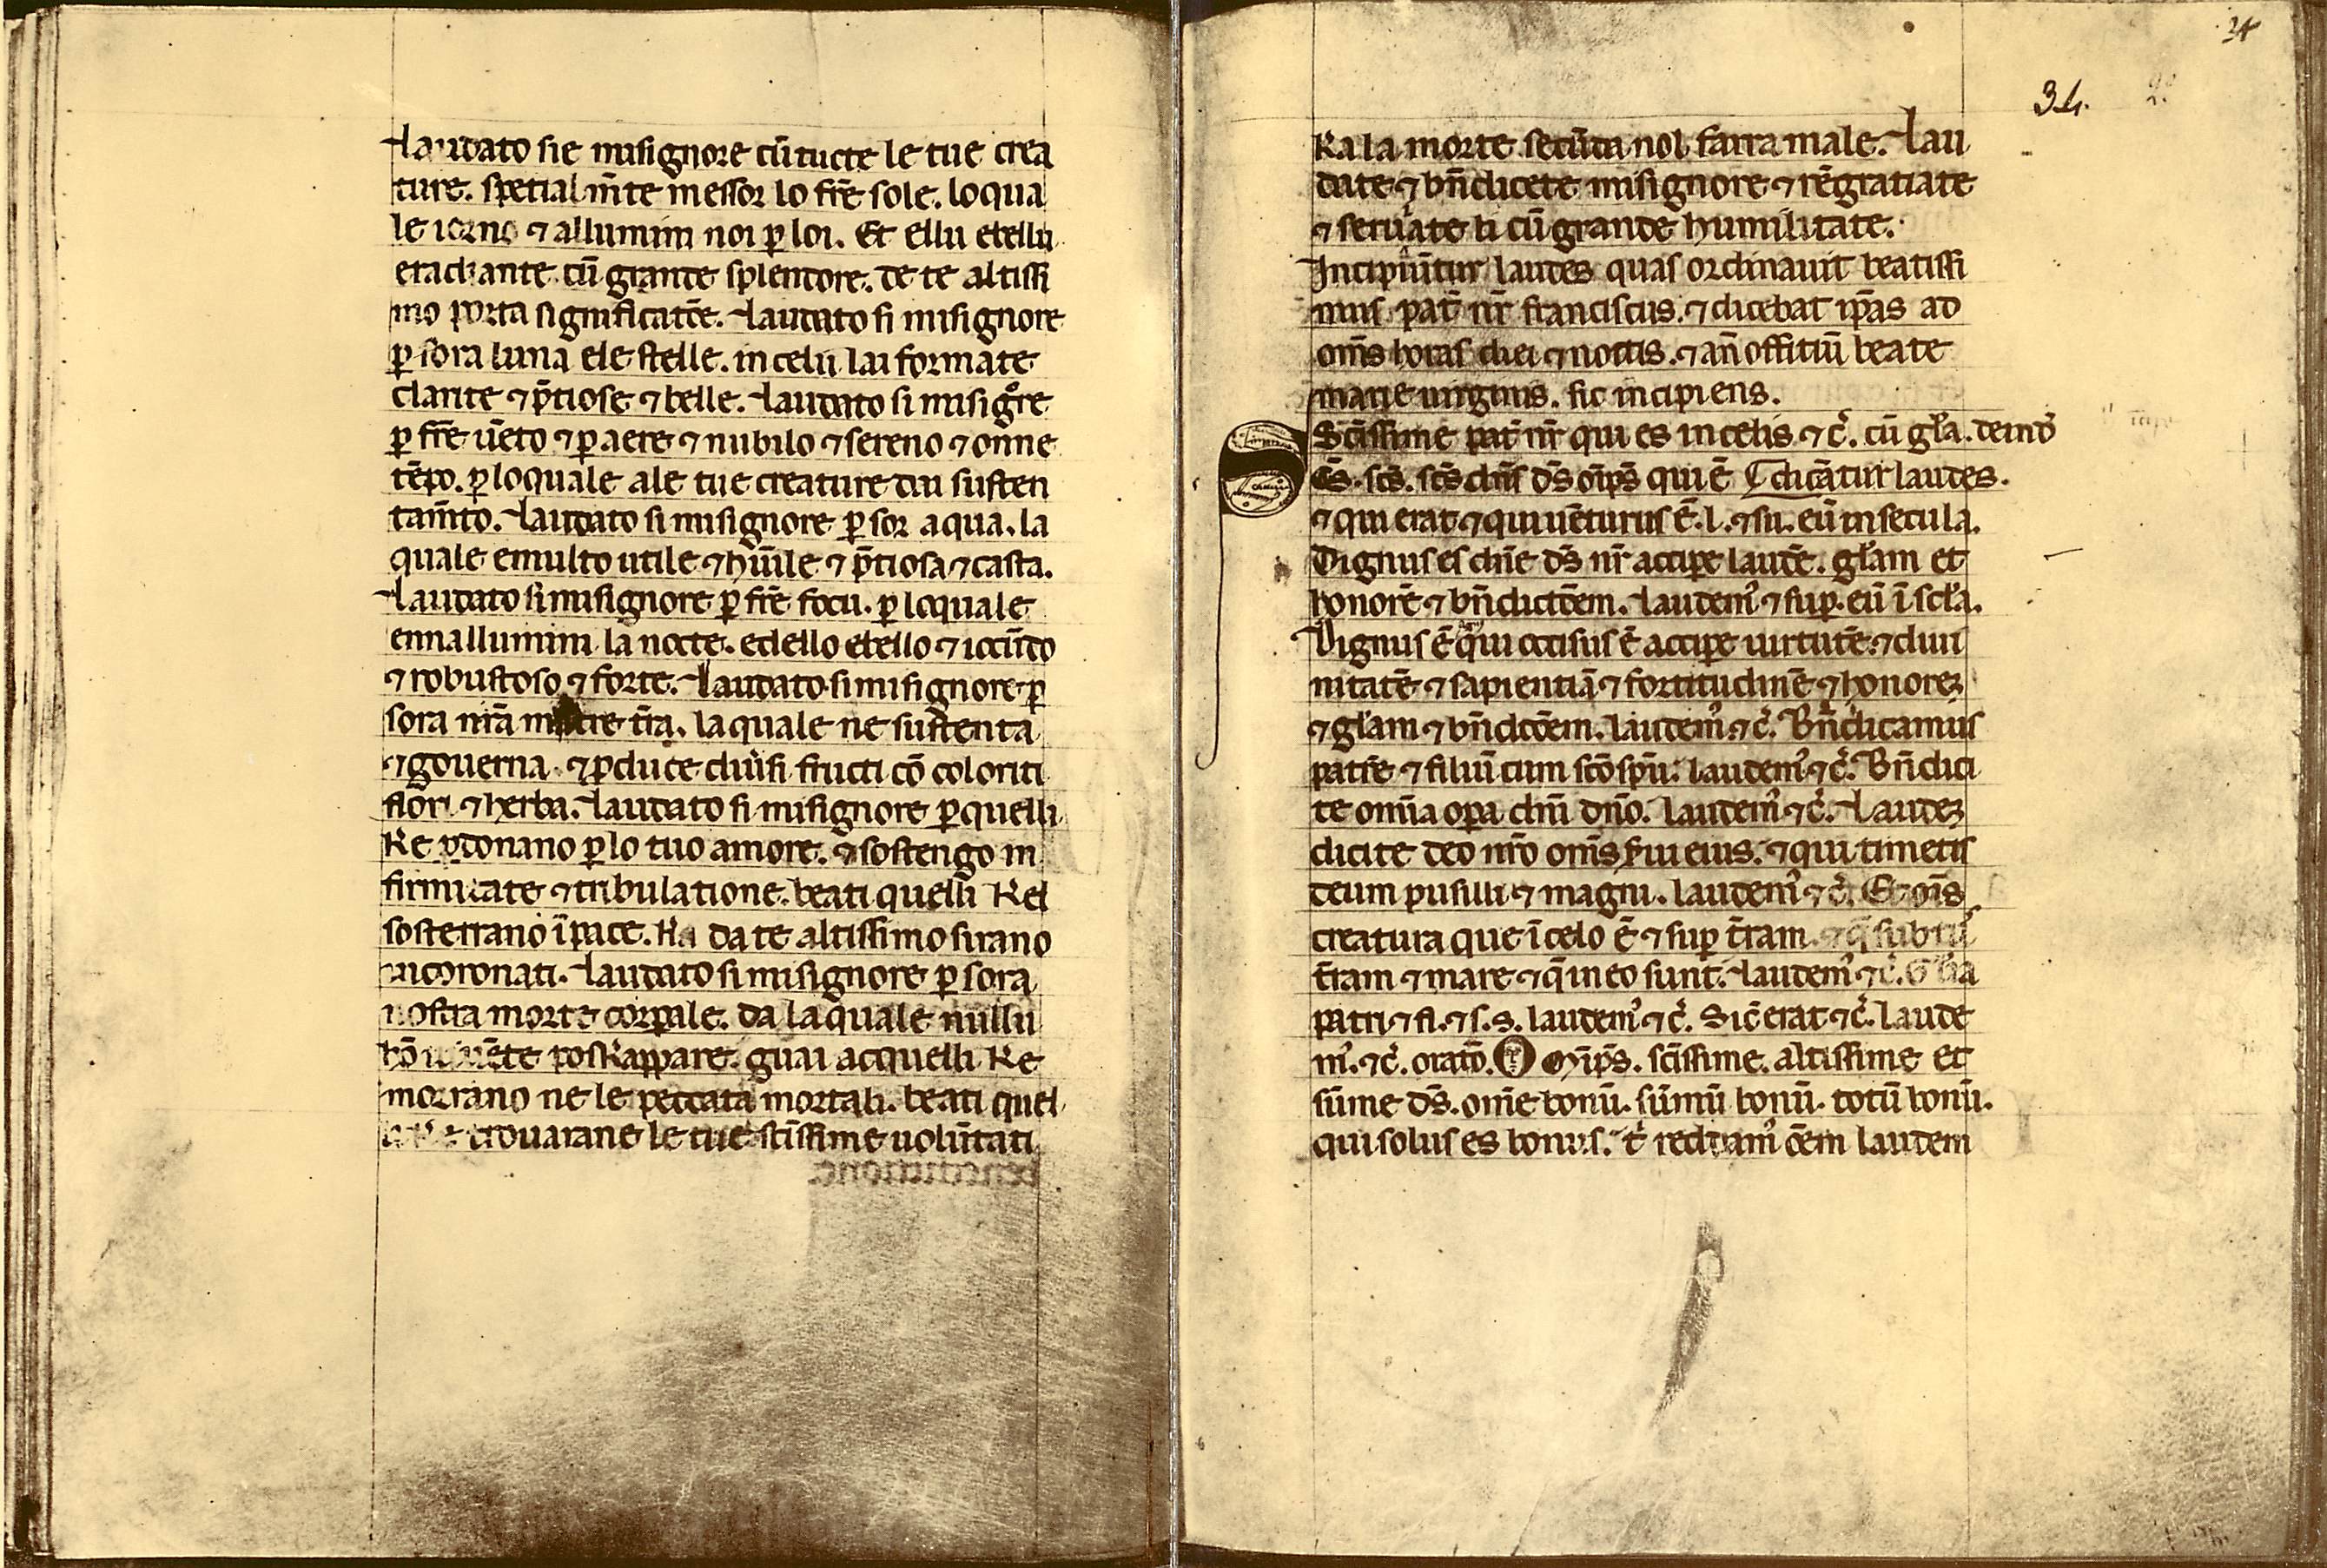 Laudato sie misignore cū tucte le tue crea
ture. spetialm̄te messor lo frē sole. loqua
le iorno ⁊ allumini noi ꝑ loi. Et ellu ebellu
eradiante cū grande splendore. de te altissi
mo porta significatōe. Laudato si misignore
ꝑ sora luna ele stelle. in celu lai formate
clarite ⁊ p̄tiose ⁊ belle. Laudato si misigͦre
ꝑ frē uēto ⁊ ꝑ aere ⁊ nubilo ⁊ sereno ⁊ onne
tēpo. ꝑ loquale ale tue creature dai susten
tam̄to. Laudato si misignore ꝑ sor aqua. la
quale emulto utile ⁊ hūile ⁊ p̄tiosa ⁊ casta.
Laudato si misignore ꝑ frē focu. ꝑ loquale
ennallumini la nocte. edello ebello ⁊ iocūdo
⁊ robustoso ⁊ forte. Laudato si misignore ꝑ
sora nrā matre tr̄a. laquale ne sustenta
⁊ gouerna ⁊ ꝓduce diuˀsi fructi cō coloriti
flori ⁊ herba. Laudato si misignore ꝑ quelli
Ke ꝑdonano ꝑ lo tuo amore. ⁊ sostengo in
firmitate ⁊ tribulatione. beati quelli Kel
sosterrano ī pace. Ka da te altissimo sirano
incoronati. Laudato si misignore ꝑ sora
nostra morte corꝑale. da laquale nullu
hō uiuēte poskappare. guai acquelli Ke
morrano ne le peccata mortali. beati quel
trouarane le tue sc̄issime uolūtati
34
34.
Ka la morte secūda nol farra male. Lau
date ⁊ bn̄dicete misignore ⁊ rēgratiate
⁊ seruiate li cū grande humilitate.
Incipiūtur laudes quas ordinauit beatissi
mus pat̄ nr̄ franciscus. ⁊ dicebat ip̄as ad
om̄s horas diei ⁊ noctis. ⁊ an̄ offitiū beate
marie uirginis. sic incipiens.
Sc̄issime pat̄ nr̄ qui es in celis ⁊ c̉. cū gl̄a. deinď
Sc̄s. sc̄s. sc̄s dn̄s ds̄ oīps̄ qui ē dicātur laudes.
⁊ qui erat ⁊ qui uēturus ē. l. ⁊ su. eū in secula.
Dignus es dn̄e ds̄ nr̄ accipe laudē. gl̄am et
honorē ⁊ bn̄dictōem. Laudemꝰ ⁊ suꝑ. eū ī scl̄a.
Dignus ē agnꝰ qui occisus ē accipe uirtutē. ⁊ diui
nitatē ⁊ sapientiā ⁊ fortitudinē ⁊ honoreꝫ
⁊ gl̄am ⁊ bn̄dctōem. laudemꝰ ⁊ c̉. Bn̄dicamus
patrē ⁊ filiū cum sc̄o spū. laudemꝰ ⁊ c̉. Bn̄dici
te omīa oꝑa dnī dn̄o. laudemꝰ ⁊ c̉. Laudeꝫ
dicite deo nr̄o om̄s ẜui eius. ⁊ qui timetis
deum pusilli ⁊ magni. laudemꝰ ⁊ c̉. Et oīs
creatura que ī celo ē ⁊ suꝑ tr̄am. ⁊ q̄ subtꝰ
tr̄am ⁊ mare ⁊ q̄ in eo sunt. laudemꝰ ⁊ c̉. Gl̄ia
patri ⁊ fi. ⁊ s. s. laudemꝰ ⁊ c̉. Sic̄ erat ⁊ c̉. laude
mꝰ. ⁊ c̉. oratō. Omīps̄. sc̄issime. altissime et
sūme ds̄. om̄e bonū. sūmū bonū. totū bonū.
qui solus es bonus. t̉ reddamꝰ oēm laudem